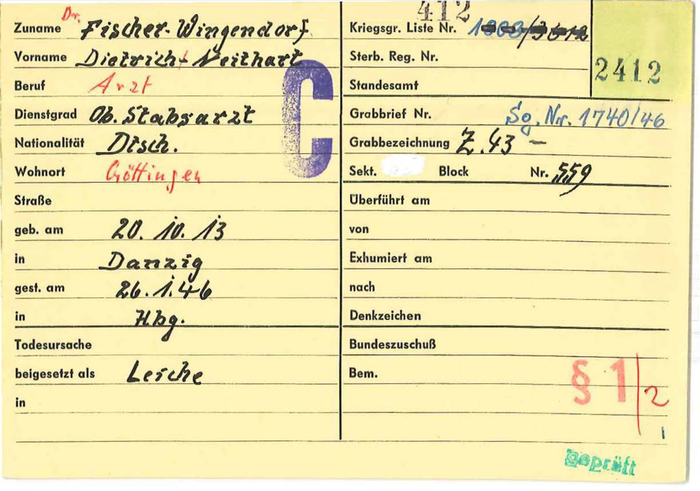 412
Zuname Dr. Fischer-Wingendorf
Vorname Dietrich-Neithart
Beruf Arzt
Dienstgrad Ob. Stabsarzt
Nationalität Dtsch.
Wohnort Göttingen
Straße
geb. am 20. 10. 13
in Danzig
gest. am 26. 1. 46
in Hbg.
Todesursache
beigesetzt als Leiche
in
C
Kriegsgr. Liste Nr.
Sterb. Reg. Nr.
Standesamt
2412
Grabbrief Nr. Sg. Nr. 1740/46
Grabbezeichnung Z. 43 –
Sekt. Block Nr. 559
Überführt am
von
Exhumiert am
nach
Denkzeichen
Bundeszuschuß
Bem.
§ 1/2
geprüft